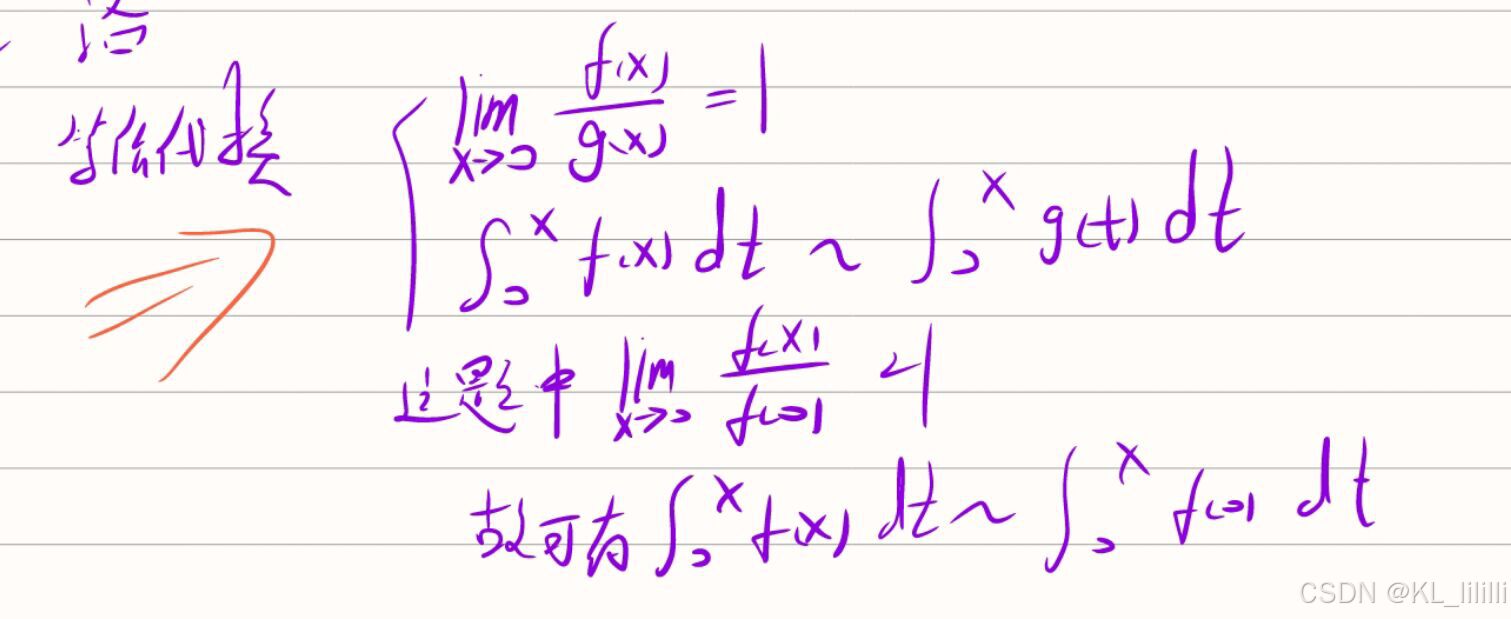 洛
等价代换
lim x→0 f(x)/g(x) = 1
∫₀ˣ f(x) dt ~ ∫₀ˣ g(t) dt
这题中 lim x→0 f(x)/f(0) = 1
故可有 ∫₀ˣ f(x) dt ~ ∫₀ˣ f(0) dt
CSDN @KL_lililli